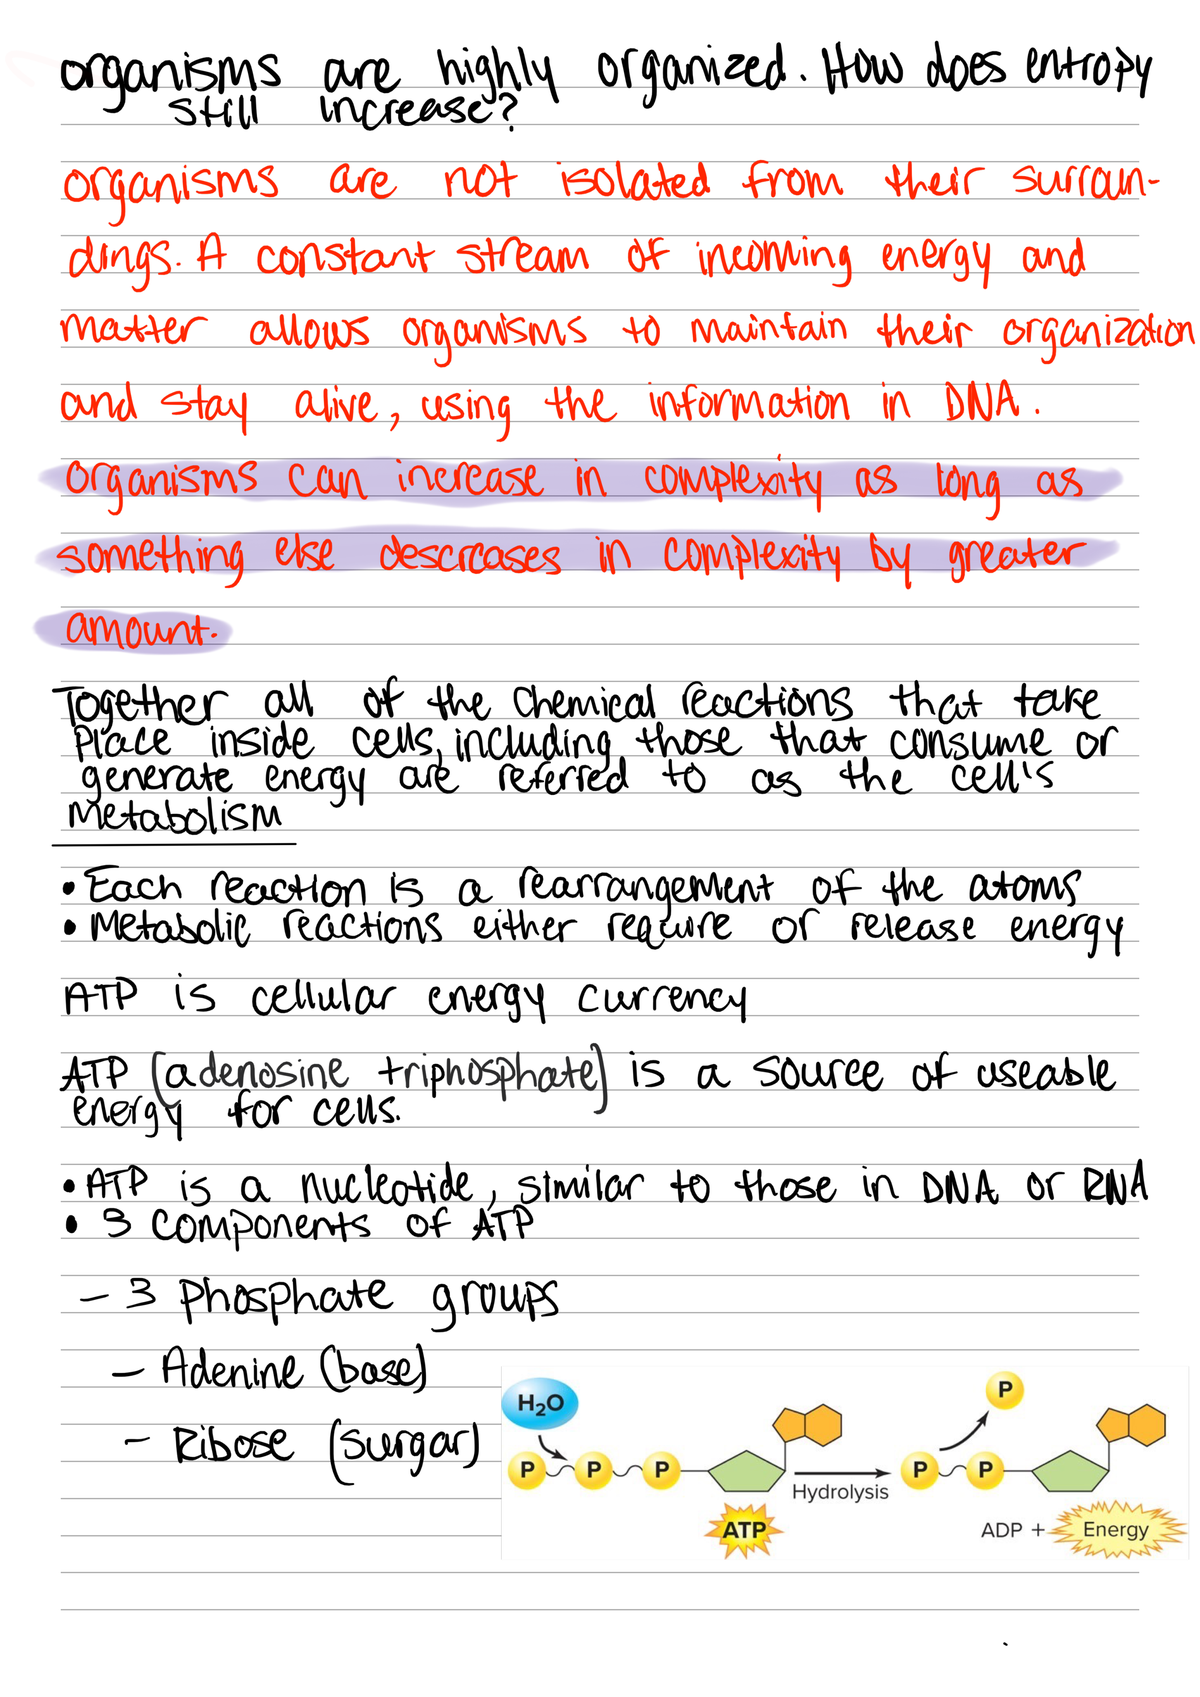 organisms are highly organized. How does entropy
still increase?
organisms are not isolated from their surroun-
dings. A constant stream of incoming energy and
matter allows organisms to maintain their organization
and stay alive, using the information in DNA.
organisms can increase in complexity as long as
something else descrcases in complexity by greater
amount.
Together all of the chemical reactions that take
place inside cells, including those that consume or
generate energy are referred to as the cell's
metabolism
• Each reaction is a rearrangement of the atoms
• Metabolic reactions either require or release energy
ATP is cellular energy currency
ATP (adenosine triphosphate) is a source of useable
energy for cells.
• ATP is a nucleotide, similar to those in DNA or RNA
• 3 components of ATP
- 3 Phosphate groups
- Adenine (base)
- Ribose (surgar)
H₂O
P P P
Hydrolysis
ATP
P
P P
ADP + Energy